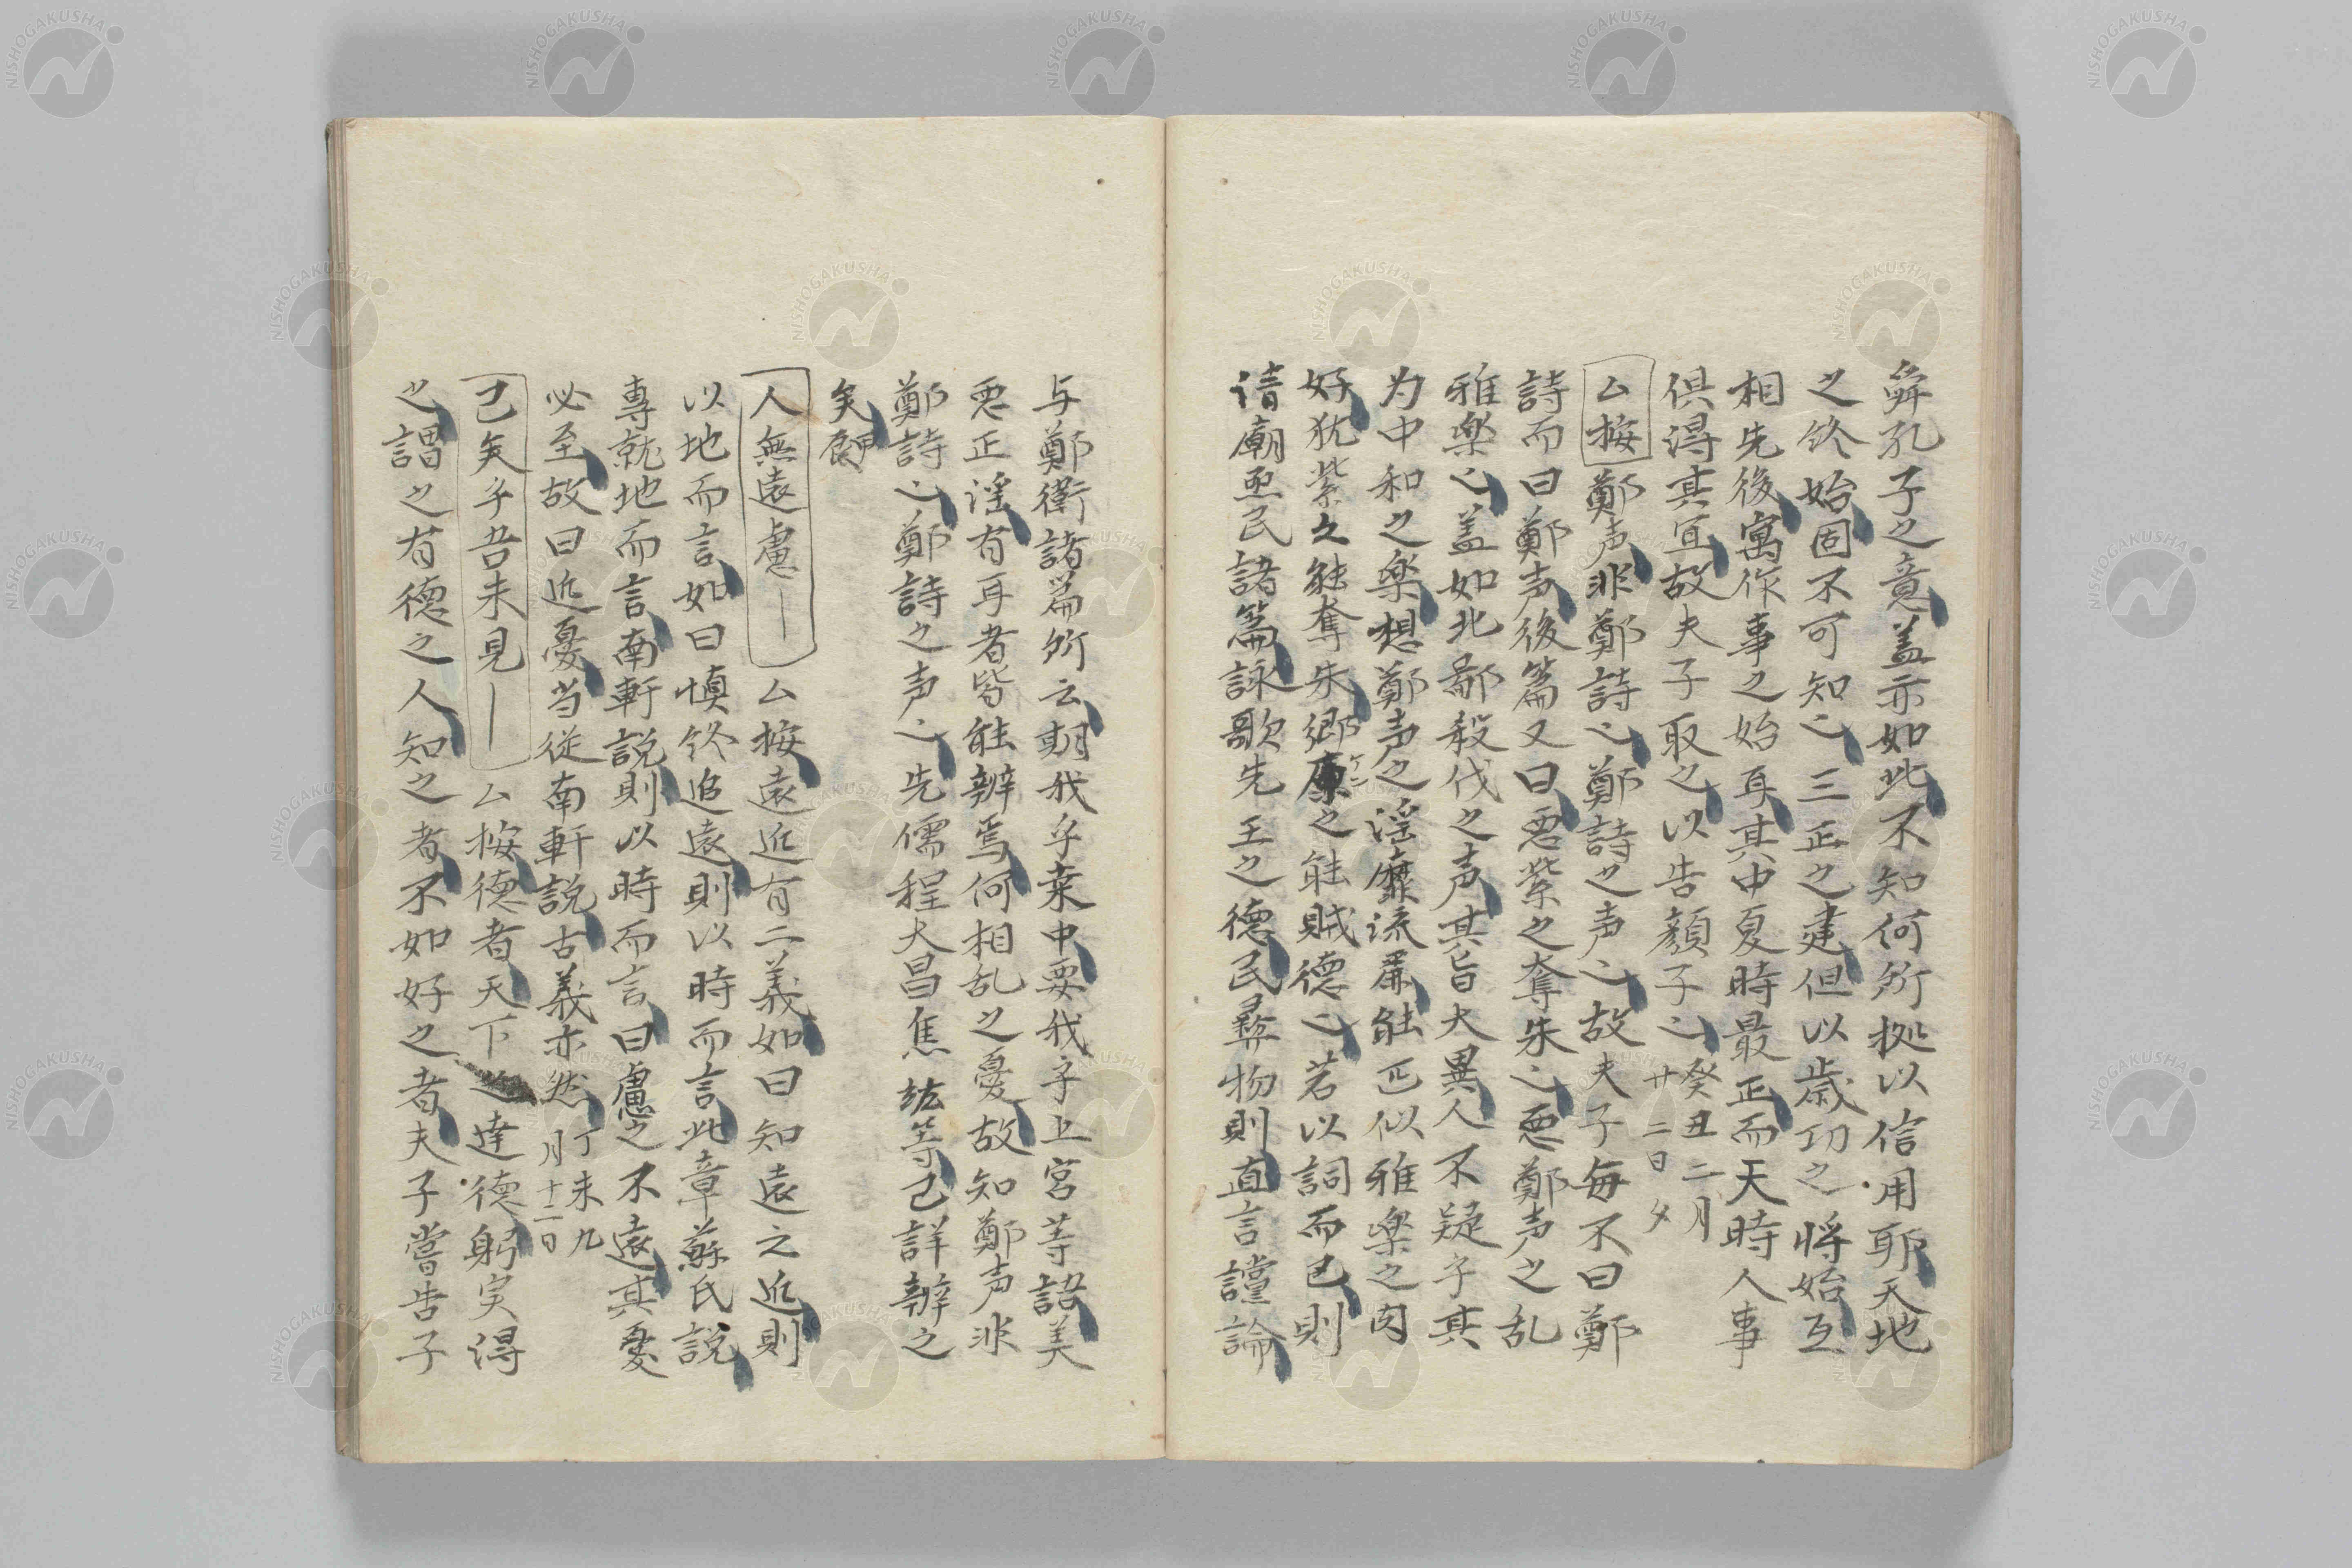 舜孔子之意蓋亦如此不知何所拠以信用耶天地
之終始固不可知也三正之建但以歳功之将始互
相先後寓作事之始耳其中夏時最正而天時人事
俱得其宜故夫子取之以告顔子也癸丑二月
廿二日夕
厶按鄭声非鄭詩也鄭詩之声也故夫子毎不曰鄭
詩而曰鄭声後篇又曰悪紫之奪朱也悪鄭声之乱
雅楽也蓋如北鄙殺伐之声其旨大異人不疑乎其
为中和之楽想鄭声之淫靡流麗能匹似雅楽之肉
好犹紫之能奪朱郷原之能賊德也若以詞而已則
清廟烝民諸篇詠歌先王之德民彝物則直言讜論
与鄭衛諸篇所云期我乎桒中要我乎上宮等語美
悪正淫有耳者皆能辨焉何相乱之憂故知鄭声非
鄭詩也鄭詩之声也先儒程大昌焦竑等已詳辨之
矣
人無遠慮― 厶按遠近有二義如曰知遠之近則
以地而言如曰慎終追遠則以時而言此章蘇氏説
専就地而言南軒説則以時而言曰慮之不遠其憂
必至故曰近憂当従南軒説古義亦然丁未九
月十二日
已矣乎吾未見― 厶按德者天下之達德躬実得
之謂之有德之人知之者不如好之者夫子嘗告子
NISHOGAKUSHA